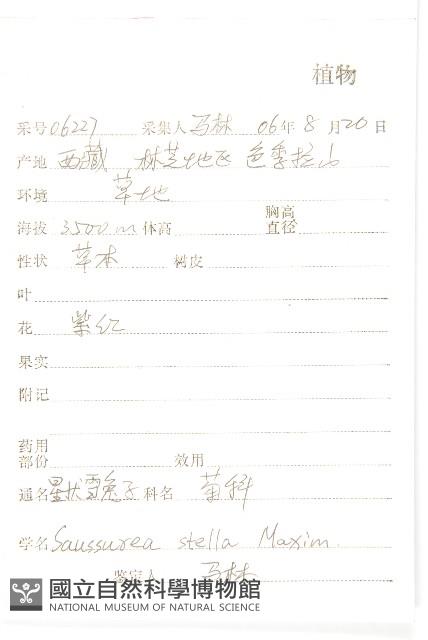 植物
采号 06227 采集人 马林 06年 8 月 20 日
产地 西藏 林芝地区 色季拉山
环境 草地
海拔 3500m 体高 胸高直径
性状 草本 树皮
叶
花 紫红
果实
附记
药用部份 效用
通名 星状雪兔子 科名 菊科
学名 Saussurea stella Maxim.
鉴定人 马林
國立自然科學博物館
NATIONAL MUSEUM OF NATURAL SCIENCE